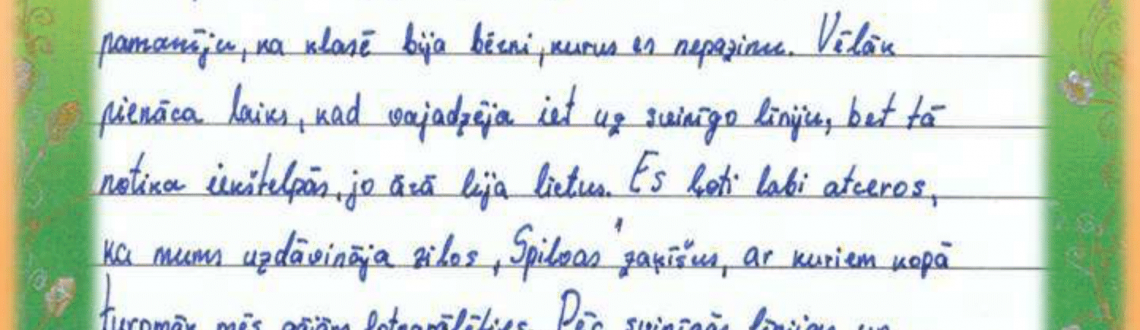 pamanīju, ka klasē bija bērni, kurus es nepazinu. Vēlāk
pienāca laiks, kad vajadzēja iet uz svinīgo līniju, bet tā
notika iekštelpās, jo ārā lija lietus. Es ļoti labi atceros,
ka mums uzdāvināja zilos „Spilvas" zaķīšus, ar kuriem kopā
turpmāk mēs gājām fotografēties. Pēc svinīgās līnijas un